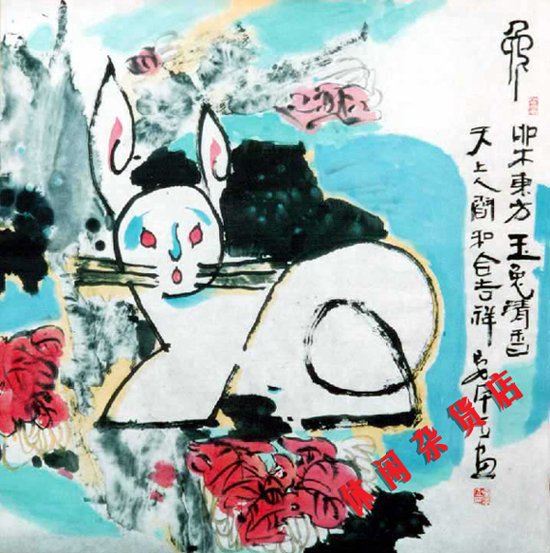 卯木東方玉兔清香
天上人間和合吉祥
休闲杂货店